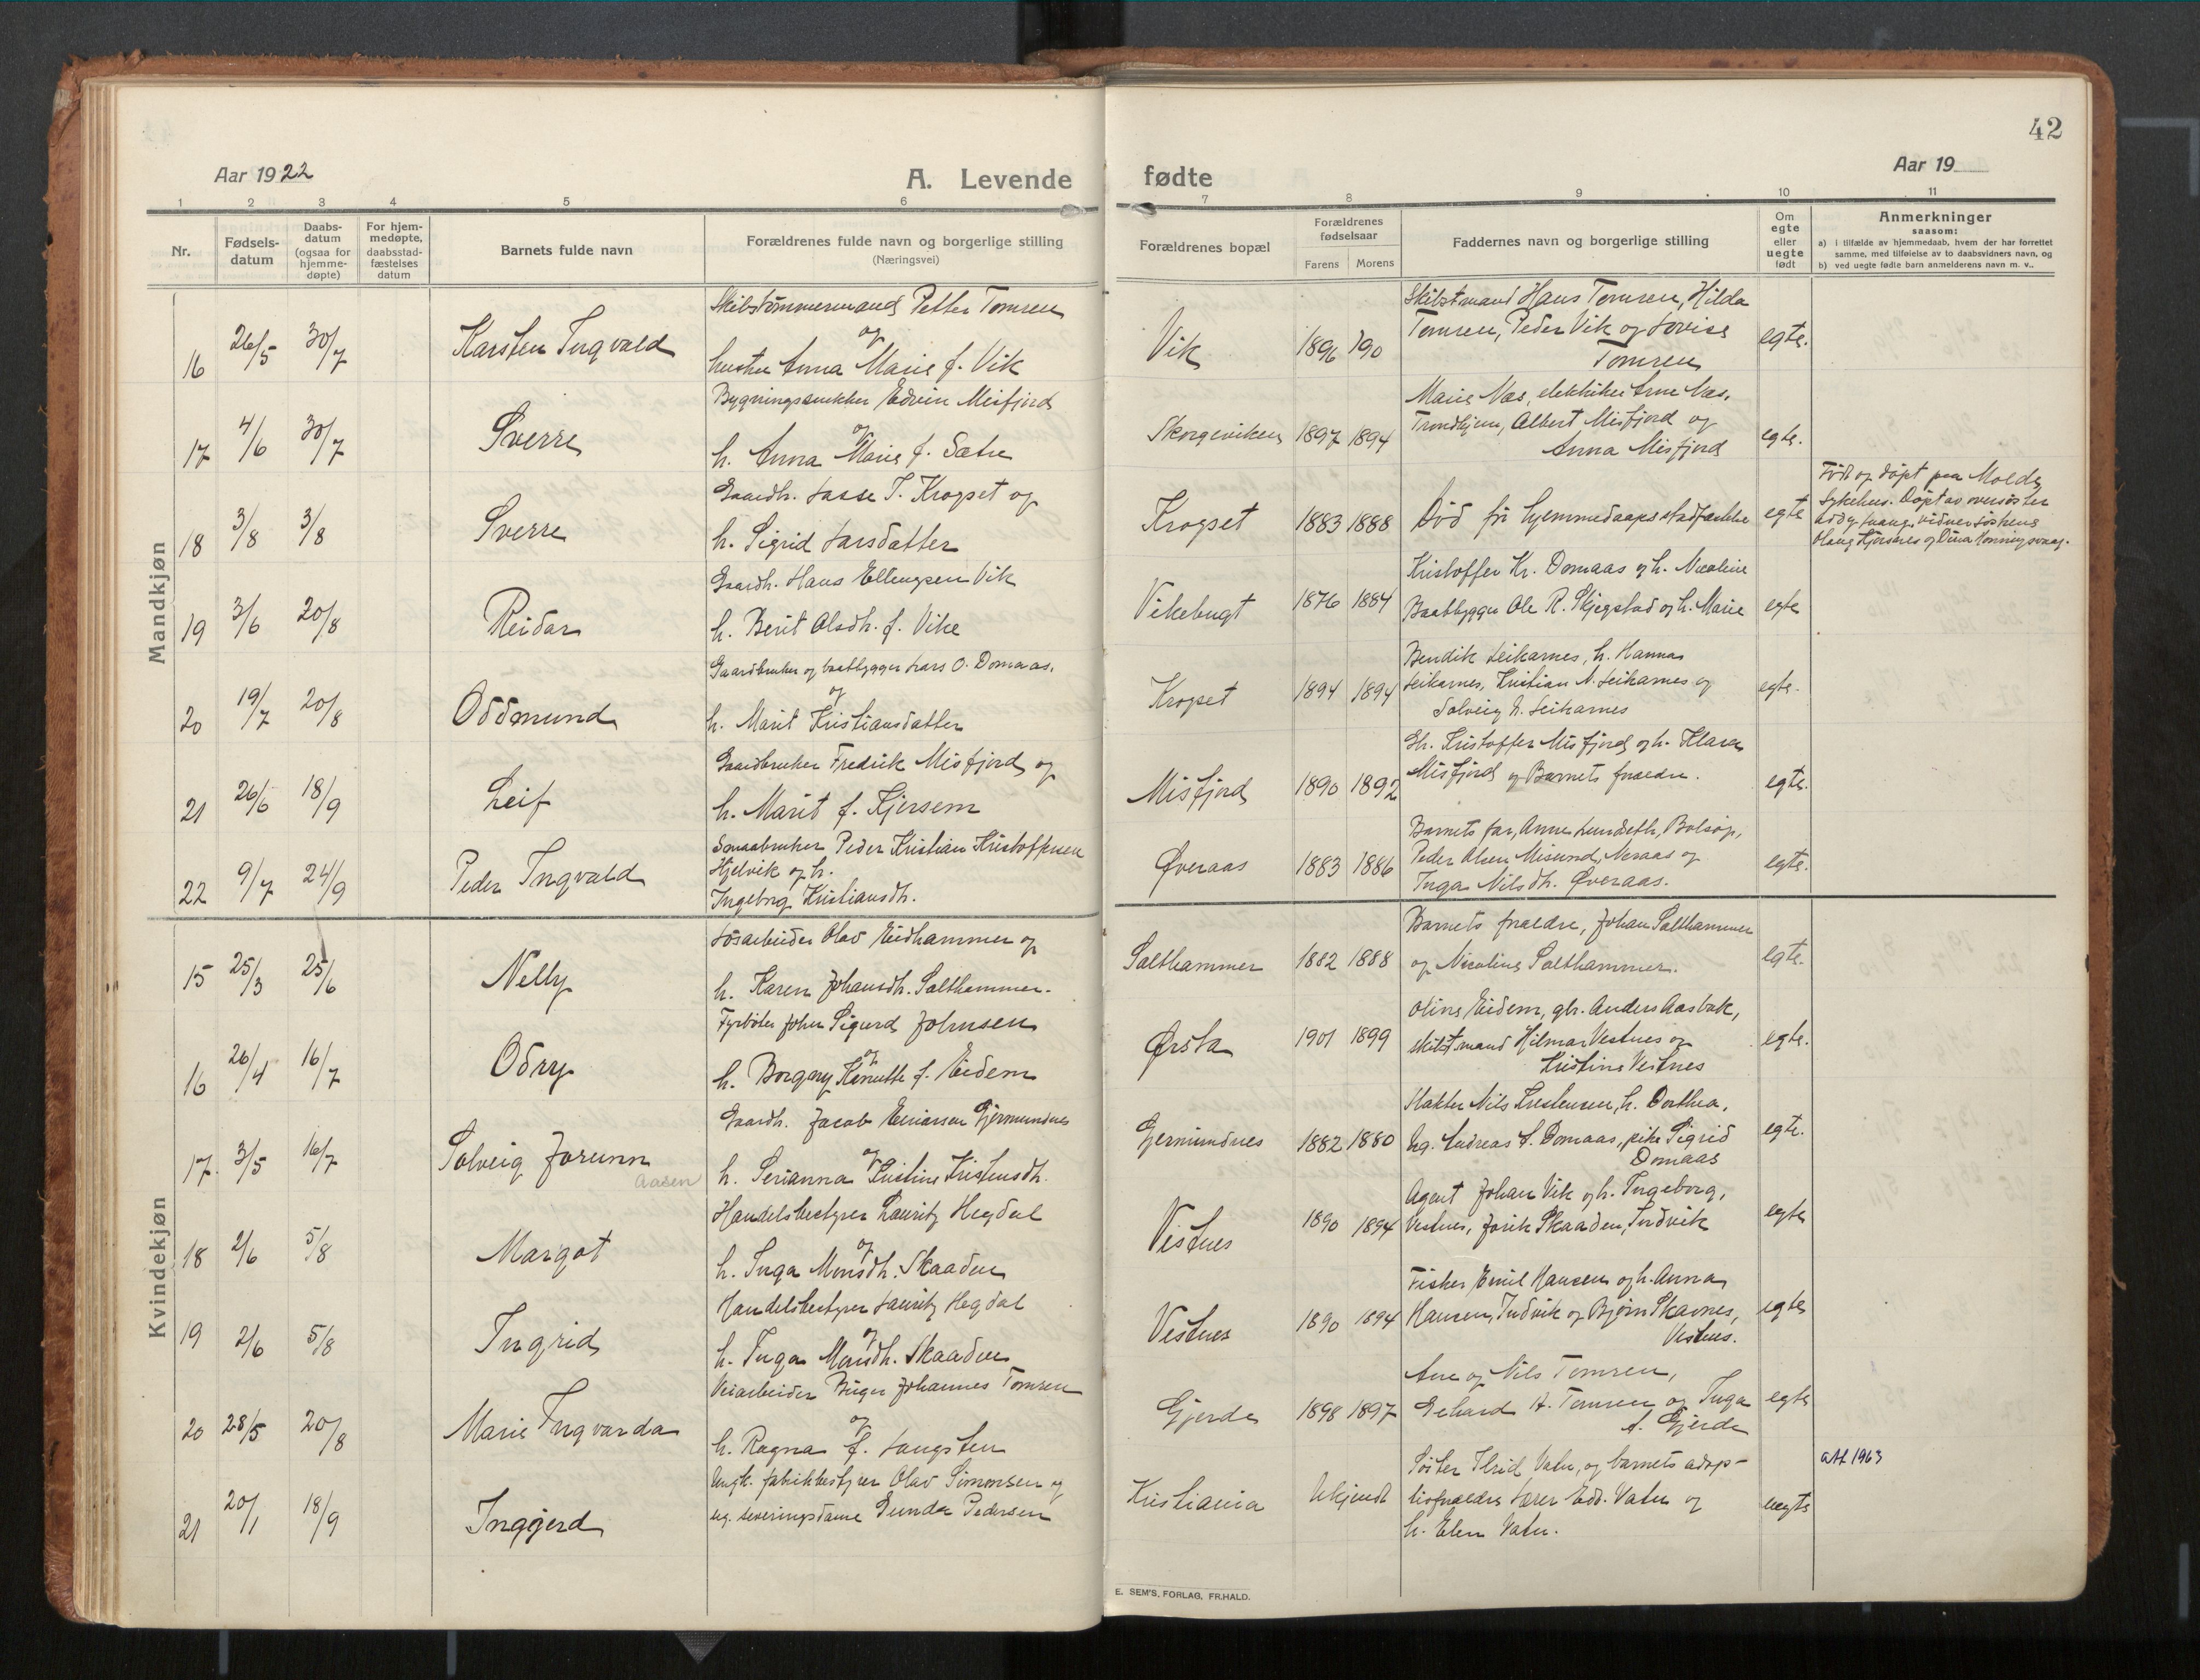 42
Aar 1922
A. Levende
fødte
Aar 19
1 2 3 4 5 6 7 8 9 10 11
Nr.
Fødsels-
datum
Daabs-
datum
(ogsaa for
hjemme-
døpte)
For hjem-
medøpte,
daabsstad-
fæstelses
datum
Barnets fulde navn
Forældrenes fulde navn og borgerlige stilling
(Næringsvei)
Forældrenes bopæl
Forældrenes
fødselsaar
Farens Morens
Faddernes navn og borgerlige stilling
Om
egte
eller
uegte
født
Anmerkninger
saasom:
a) i tilfælde av hjemmedaab, hvem der har forrettet
samme, med tilføielse av to daabsvidners navn, og
b) ved uegte fødte barn anmelderens navn m. v..
Mandkjøn
16 26/5 30/7 Karsten Ingvald
Skibstømmermand Petter Tomren
og
hustru Anna Marie f. Vik
Vik 1896 190
Skibstmand Hans Tomren, Hilda
Tomren, Peder Vik og Lovise
Tomren
egte.
17 4/6 30/7 Sverre
Bygningssnekker Edvin Misfjord
og
h. Anna Marie f. Sætre
Skorgeviken 1897 1894
Marie Næs, elektriker Arne Næs,
Trondhjem, Albert Misfjord og
Anna Misfjord
egte.
18 3/8 3/8 Sverre
Gaardb. Lasse T. Krogset og
h. Sigrid Larsdatter
Krogset 1883 1888
Død før hjemmedaaps stadfæstelse
egte
Født og døpt paa Molde
sykehus. Døpt av oversøster
vidner søstrene
og Dina Honningsvaag.
19 3/6 20/8 Reidar
Gaardb. Hans Ellingsen Vik
h. Berit Olsdh. f. Vike
Vikebugt 1876 1884
Kristoffer Kr. Domaas og h. Nicoline
Baatbygger Ole R. Skjegstad og h. Marie
egte
20 19/7 20/8 Oddmund
Gaardbruker og baatbygger Lars O. Domaas.
og
h. Marit Kristiansdatter
Krogset 1894 1894
Bendik Leikarnes, h. Hanna
Leikarnes, Kristian N. Leikarnes og
Solveig N. Leikarnes
egte.
21 26/6 18/9 Leif
Gaardbruker Fredrik Misfjord og
h. Marit f. Kjersem
Misfjord 1890 1892
Gb. Kristoffer Misfjord og h. Klara
Misfjord og Barnets foræeldre.
egte.
22 9/7 24/9 Peder Ingvald
Smaabruker Peder Kristian Kristoffersen
Hjelvik og h.
Ingeborg Kristiansdh.
Øveraas 1883 1886
Barnets far, Anne Lundseth, Bolsøy,
Peder Olsen Misund, Neraas og
Inga Nilsdh. Øveraas.
egte.
Kvindekjøn
15 25/3 25/6 Nelly
Løsarbeider Olav Eidhammer og
h. Karen Johansdh. Salthammer.
Salthammer 1882 1888
Barnets forældre, Johan Salthammer
og Nicoline Salthammer.
egte.
16 26/4 16/7 Odny
Fyrbøter Johan Sigurd Johnsen
og
h. Borgny Kanutte f. Eidem
Ørsta 1901 1899
Oline Eidem, gbr. Anders Aasbak,
skibstmand Hilmar Vestnes og
Kristine Vestnes
egte.
17. 3/5 16/7 Solveig Jorunn
Aasen
Gaardb. Jacob Gjermundnes
og
h. Serianna Kristine Kristensdh.
Gjermundnes 1882 1880
Slakter Nils Kristensen, h. Dorthea,
Ug. Andreas L. Domaas, pike Sigrid
Domaas
egte.
18 2/6 5/8 Margot
Handelsbestyrer Lauritz Hegdal
og
h. Inga Monsdh. Skaaden
Vestnes 1890 1894
Agent Johan Vik og h. Ingeborg,
Vestnes, Jorik Skaaden, Tredvik
egte
19 2/6 5/8 Ingrid
Handelsbestyrer Lauritz Hegdal
og
h. Inga Monsdh. Skaaden
Vestnes 1890 1894
Fisker Emil Hansen og h. Anna
Hansen, Indvik og Bjørn Skavnes,
Vestnes.
egte
20 28/5 20/8 Marie Ingvarda
Veiarbeider Birger Johannes Tomren
og
h. Ragna f. Langsten
Gjerde 1898 1897
Ane og Nils Tomren,
Gerhard A. Tomren og Inga
A. Gjerde
egte
21 20/1 18/9 Inggjerd
Ungk. fabrikbestyrer Olav Simonsen og
ug. serveringsdame Gunda Pedersen
Kristiania Ukjendt
Søster Thrid Vatn, og barnets adop-
tivforældre Lærer Edv. Vatn og
h. Elen Vatn.
uegte
att 1963
E. SEM'S, FORLAG, FR.HALD.